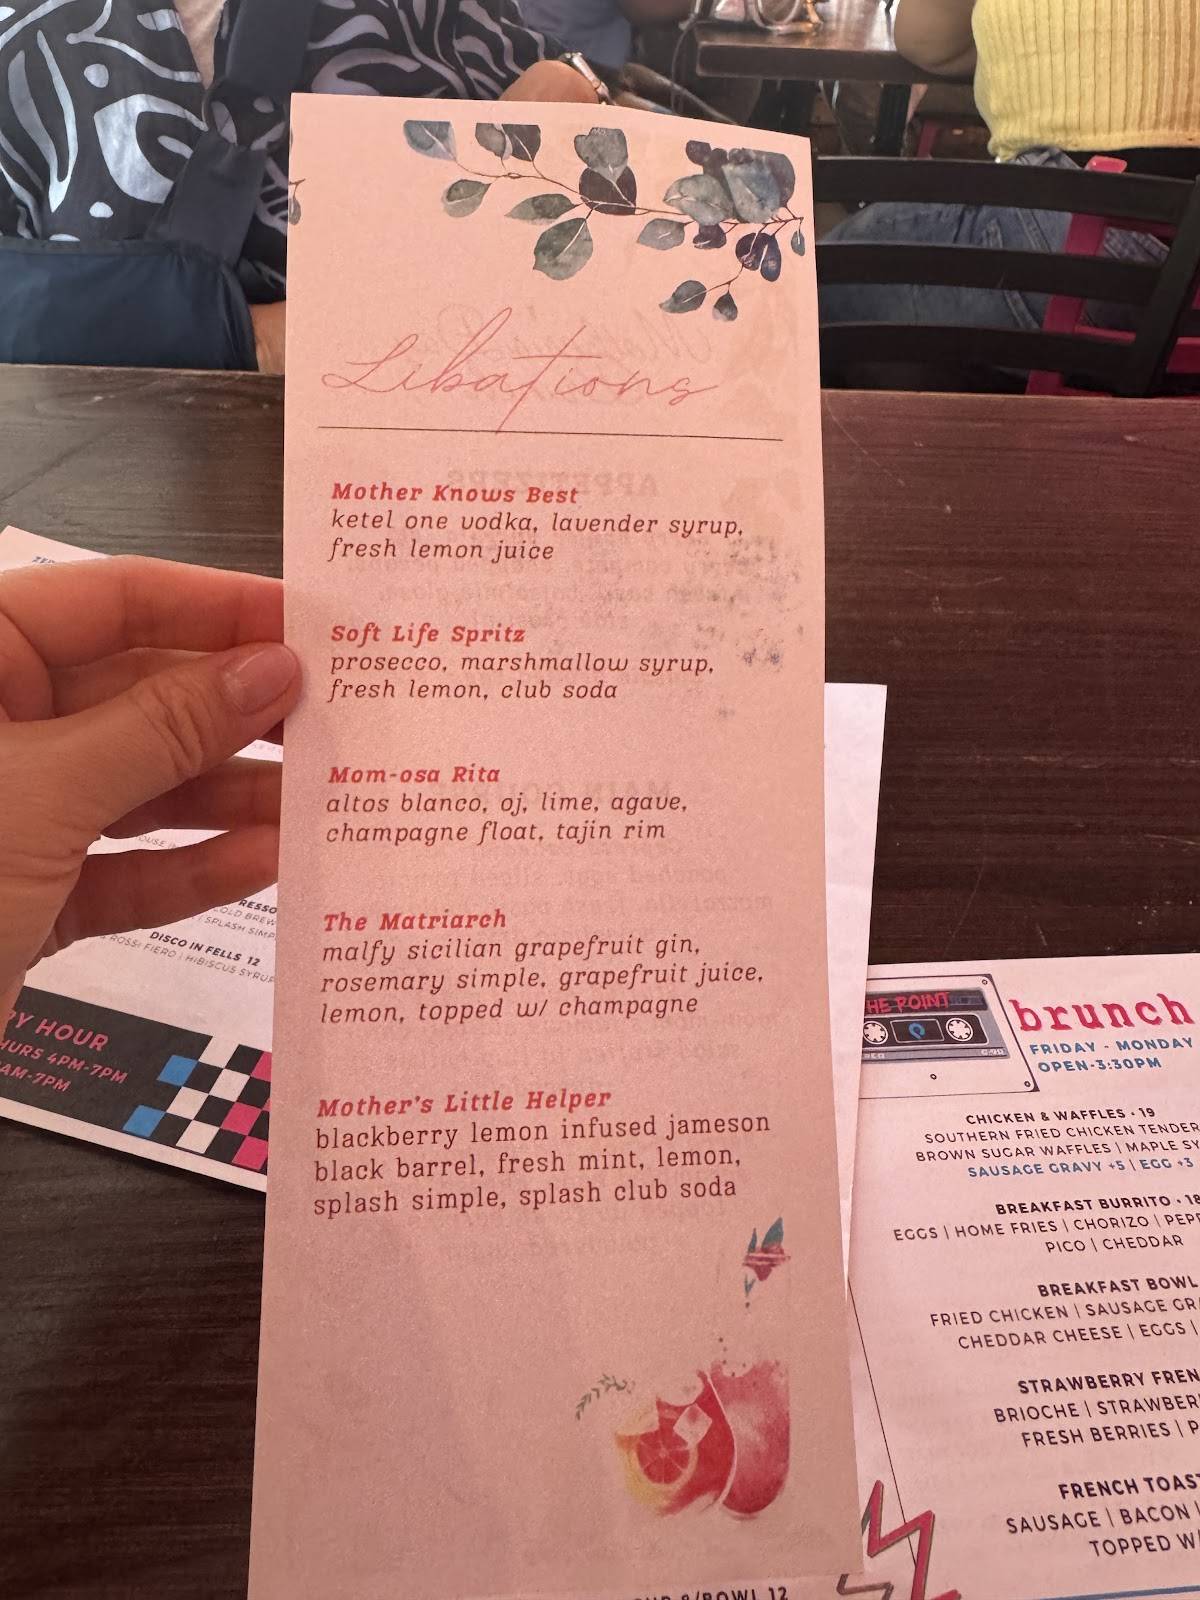 Libations
Mother Knows Best
ketel one vodka, lavender syrup,
fresh lemon juice
Soft Life Spritz
prosecco, marshmallow syrup,
fresh lemon, club soda
Mom-osa Rita
altos blanco, oj, lime, agave,
champagne float, tajin rim
The Matriarch
malfy sicilian grapefruit gin,
rosemary simple, grapefruit juice,
lemon, topped w/ champagne
Mother's Little Helper
blackberry lemon infused jameson
black barrel, fresh mint, lemon,
splash simple, splash club soda
/BOWL 12
RESSO
COLD BREW
| SPLASH SIMP
DISCO IN FELLS 12
ROSSI FIERO | HIBISCUS SYRUP
PY HOUR
HURS 4PM-7PM
AM-7PM
HE POINT
C-90
brunch
FRIDAY - MONDAY
OPEN-3:30PM
CHICKEN & WAFFLES • 19
SOUTHERN FRIED CHICKEN TENDER
BROWN SUGAR WAFFLES | MAPLE SY
SAUSAGE GRAVY +5 | EGG +3
BREAKFAST BURRITO • 18
EGGS | HOME FRIES | CHORIZO | PEPP
PICO | CHEDDAR
BREAKFAST BOWL
FRIED CHICKEN | SAUSAGE GR
CHEDDAR CHEESE | EGGS |
STRAWBERRY FREN
BRIOCHE | STRAWBER
FRESH BERRIES | P
FRENCH TOAST
SAUSAGE | BACON |
TOPPED W